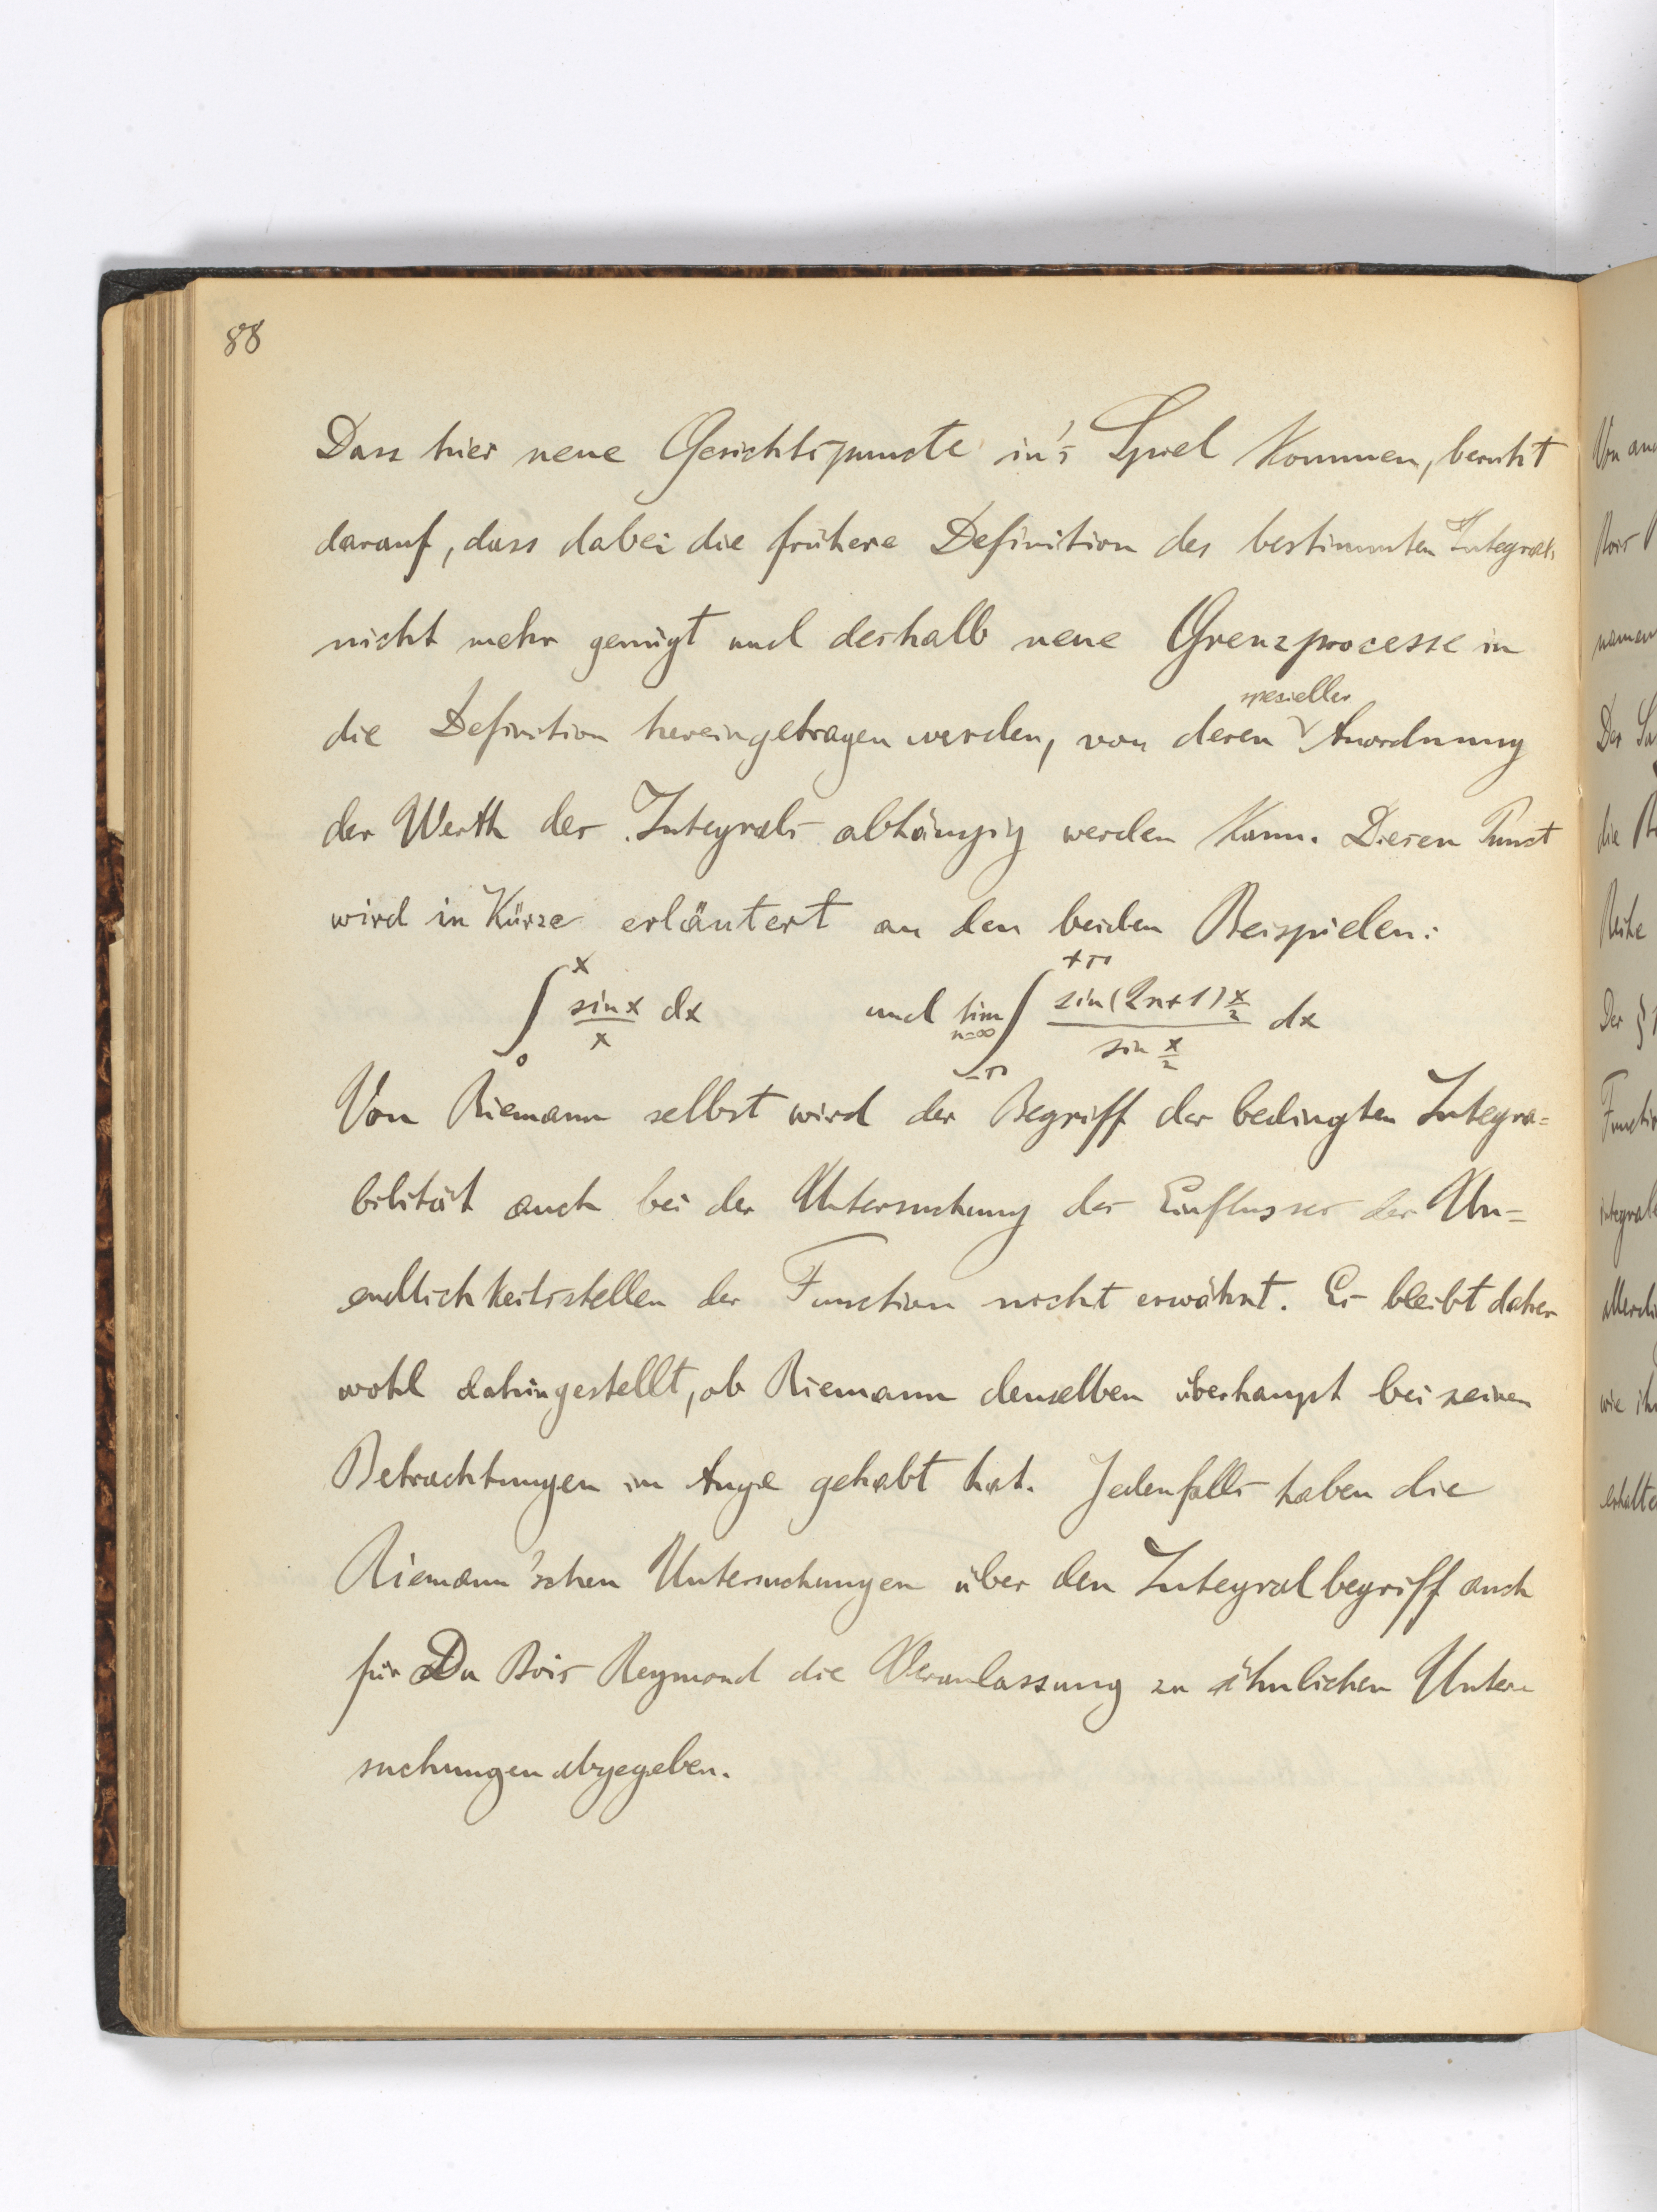 88
Dass hier neue Gesichtspuncte in's Spiel kommen, beruht
darauf, dass dabei die frühere Definition des bestimmten Integrals
nicht mehr genügt und deshalb neue Grenzprocesse in
spezieller
die Definition hereingetragen werden, von deren Anordnung
der Werth des Integrals abhängig werden kann. Diesen Punct
wird in Kürze erläutert an den beiden Beispielen:
∫₀ˣ sin x / x dx und lim n=∞ ∫₋π⁺π sin(2n+1) x/2 / sin x/2 dx
Von Riemann selbst wird der Begriff der bedingten Integra=
bilität auch bei der Untersuchung des Einflusses der Un=
endlichkeitsstellen der Function nicht erwähnt. Es bleibt daher
wohl dahingestellt, ob Riemann denselben überhaupt bei seinen
Betrachtungen im Auge gehabt hat. Jedenfalls haben die
Riemann'schen Untersuchungen über den Integralbegriff auch
für Du Bois Reymond die Veranlassung zu ähnlichen Unter=
suchungen abgegeben.
Von
Bois
Der
die
Reihe
Der §
wie